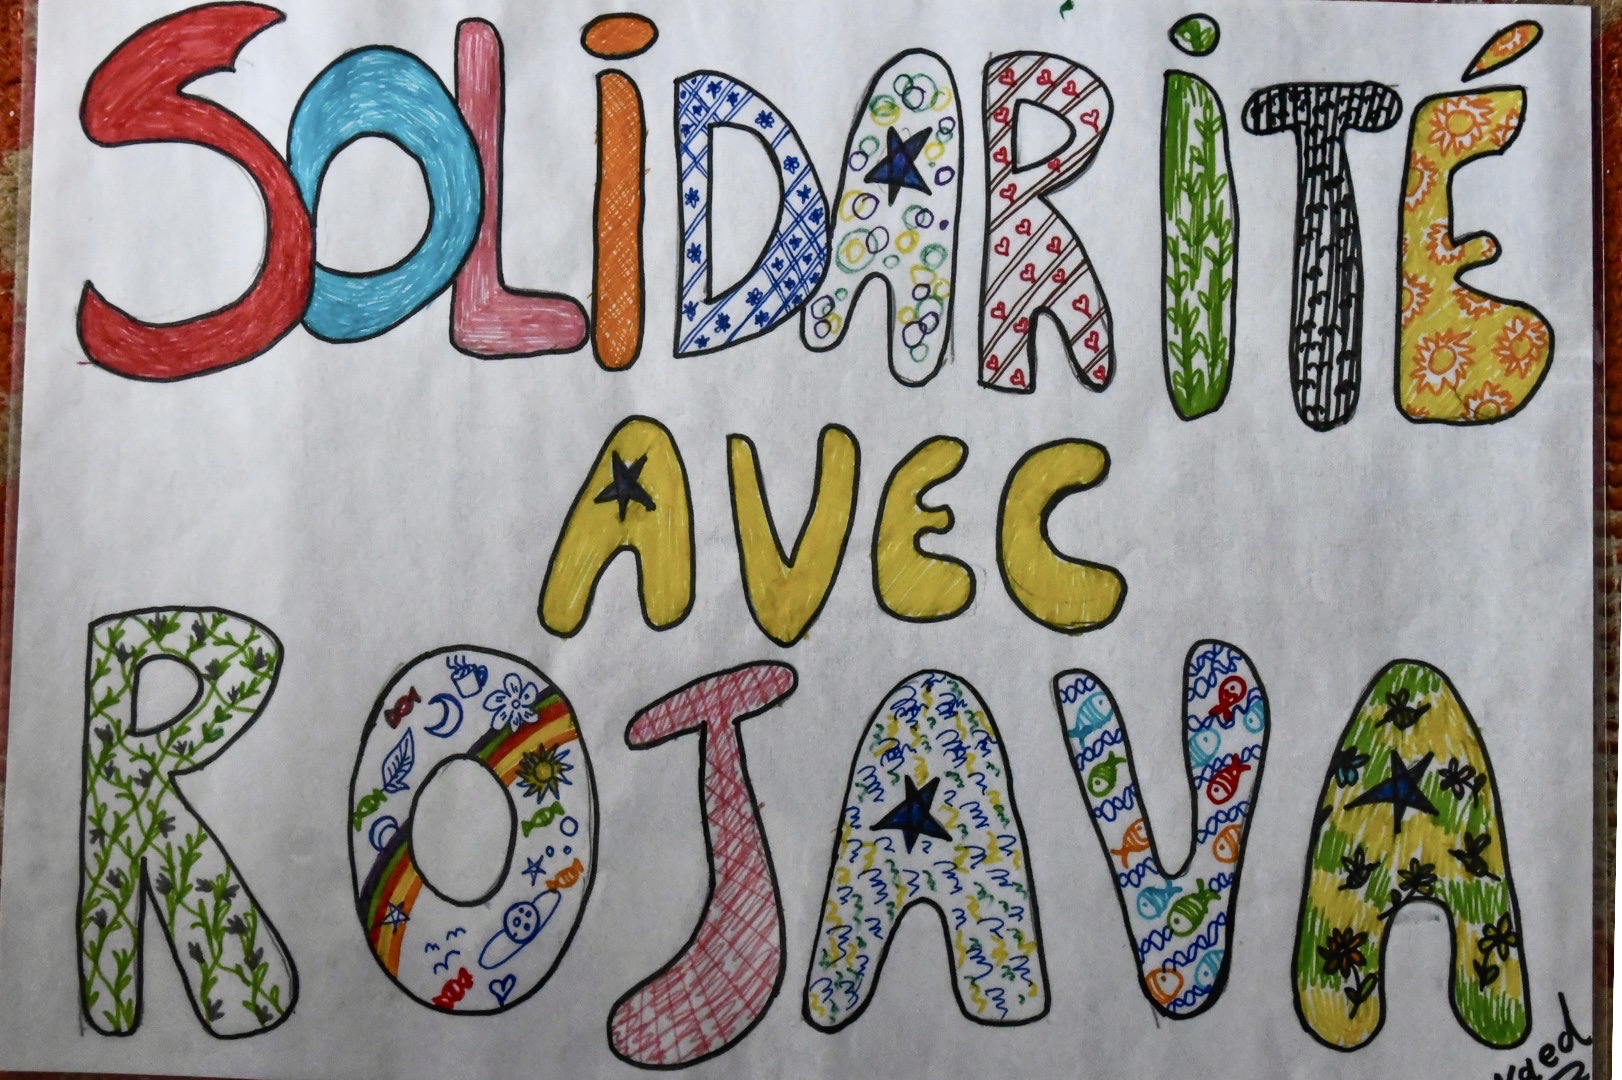 SOLiDARiTÉ
AVEC
ROJAVA